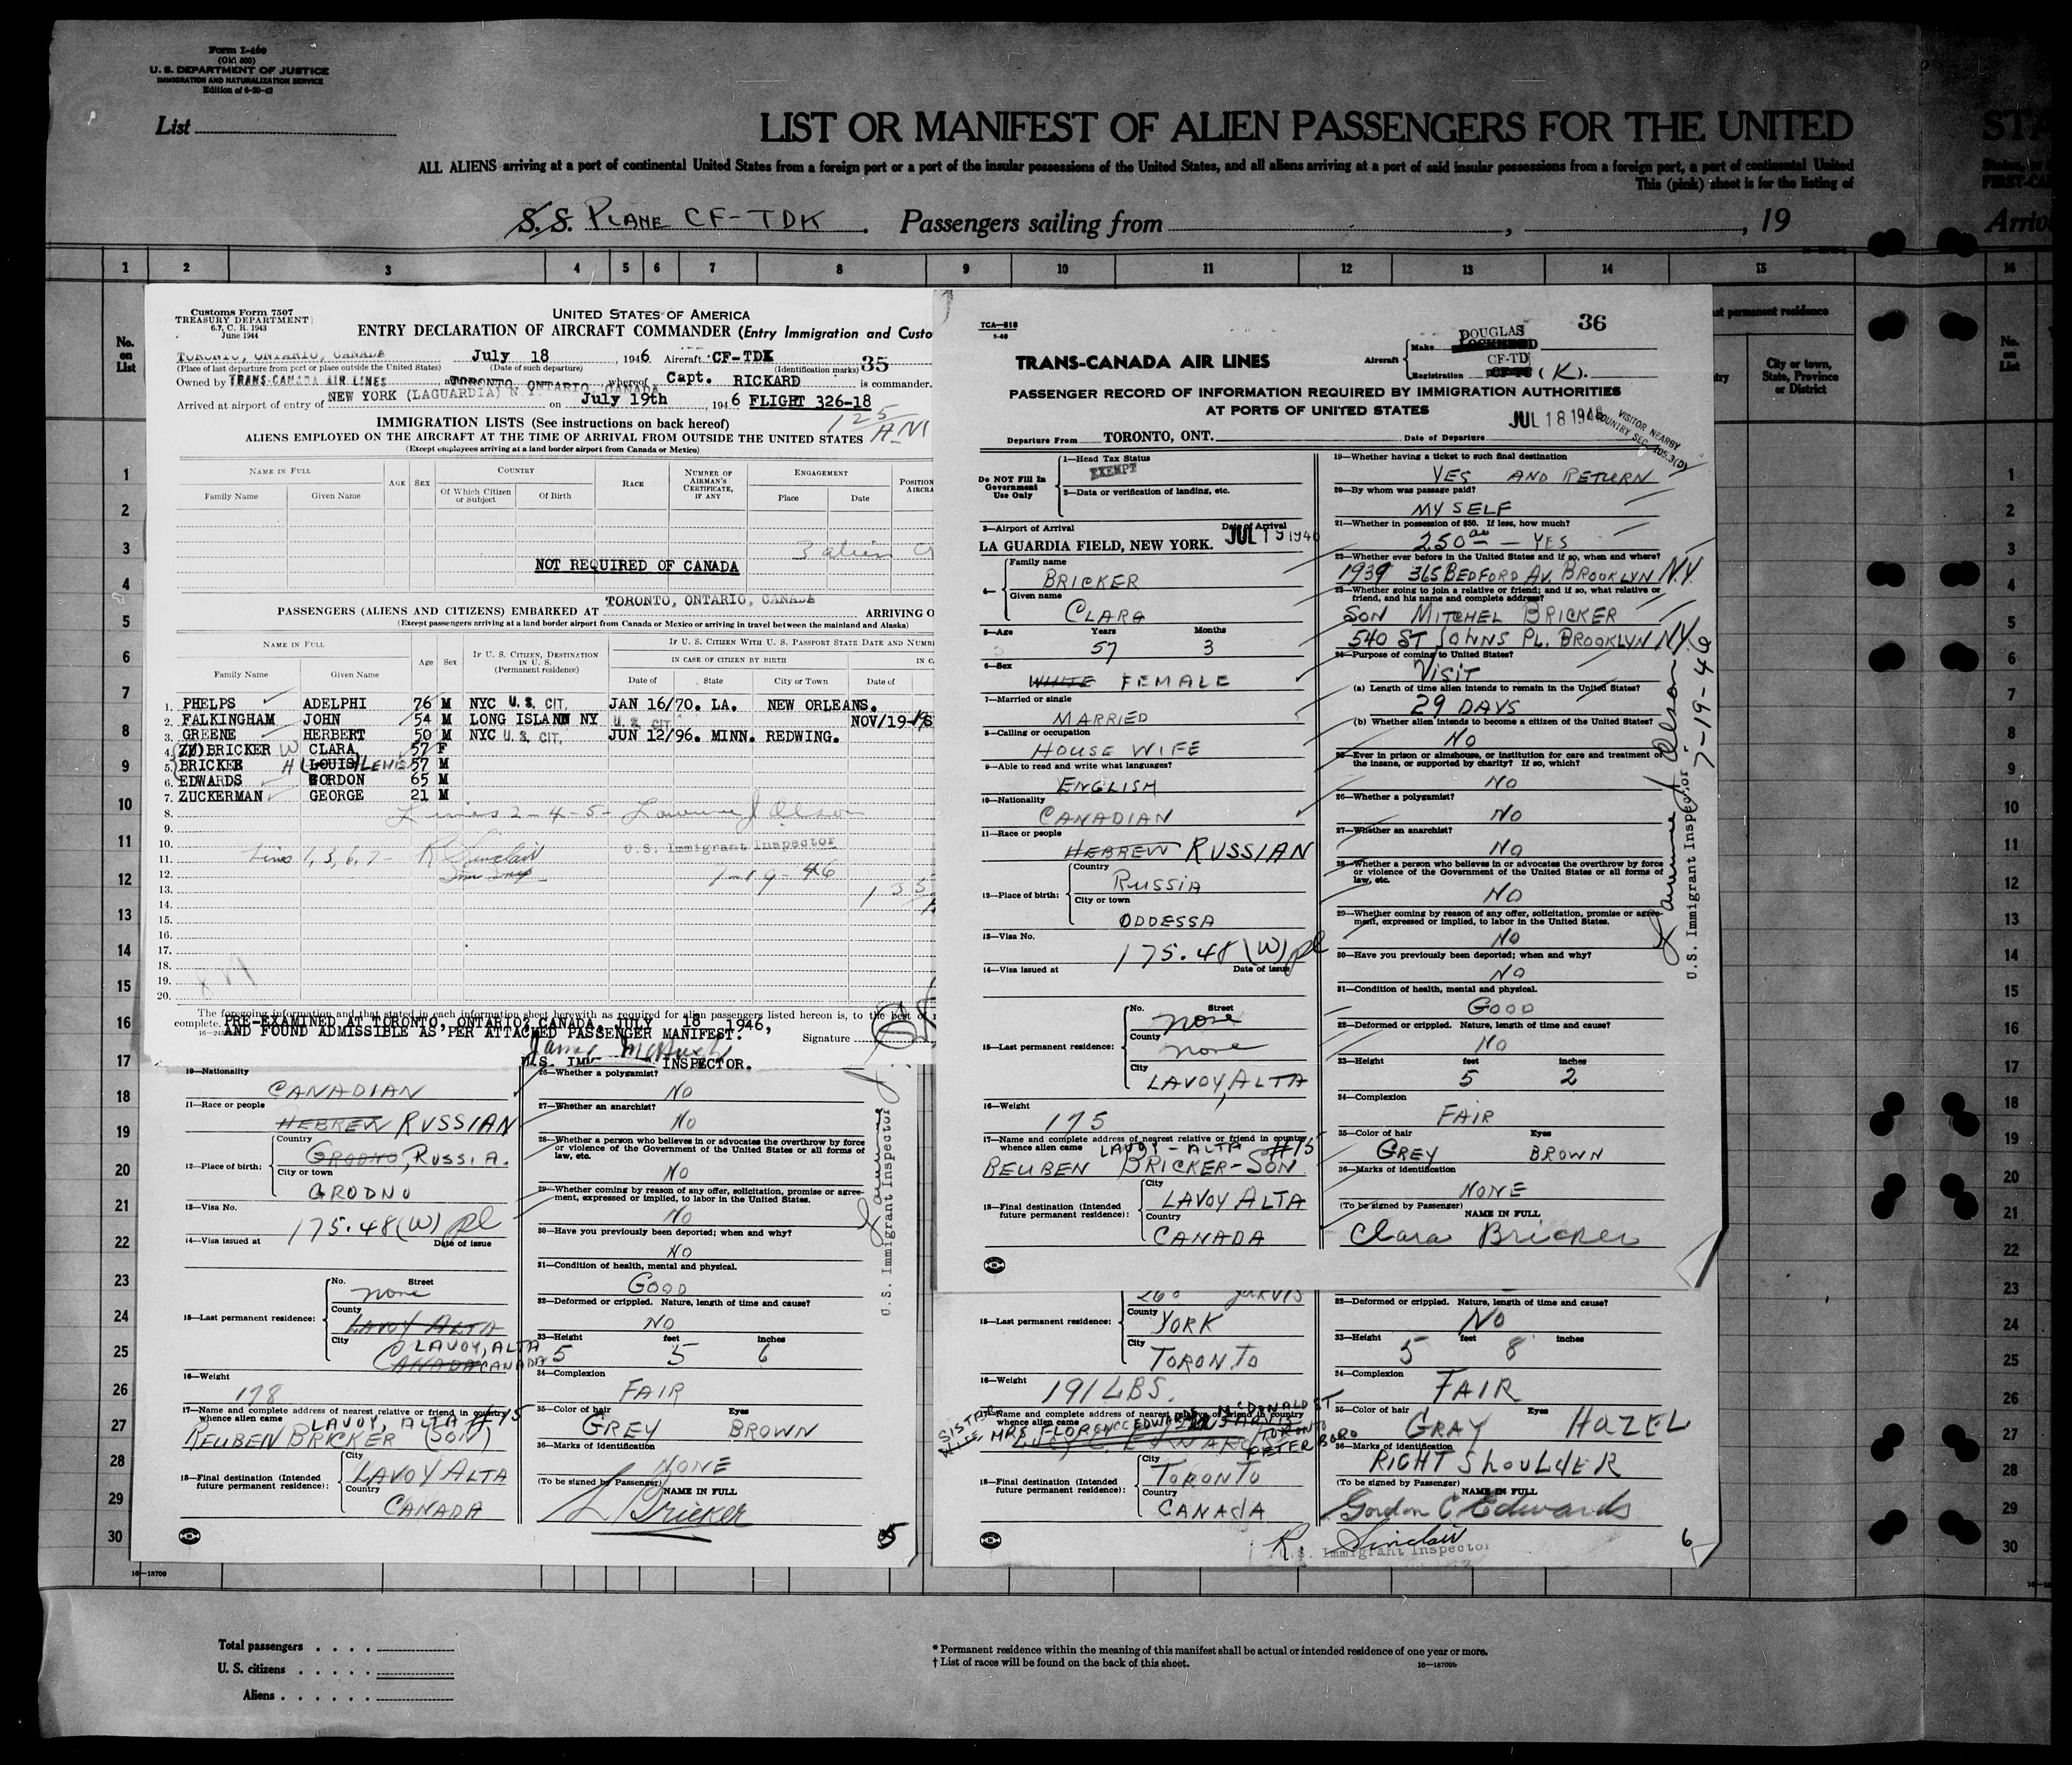 Form I-400
(Old 500)
U. S. DEPARTMENT OF JUSTICE
IMMIGRATION AND NATURALIZATION SERVICE
Edition of 6-20-42
List
LIST OR MANIFEST OF ALIEN PASSENGERS FOR THE UNITED
STA
ALL ALIENS arriving at a port of continental United States from a foreign port or a port of the insular possessions of the United States, and all aliens arriving at a port of said insular possessions from a foreign port, a port of continental United
This (pink) sheet is for the listing of
S.S. PLANE CF-TDK. Passengers sailing from , , 19
1 2 3 4 5 6 7 8 9 10 11 12 13 14 15 16
No. on List
Customs Form 7507
TREASURY DEPARTMENT
6.7, C. R. 1943
June 1944
UNITED STATES OF AMERICA
ENTRY DECLARATION OF AIRCRAFT COMMANDER (Entry Immigration and Custo
TORONTO, ONTARIO, CANADA July 18, 1946 Aircraft CF-TDK 35
(Place of last departure from port or place outside the United States) (Date of such departure) (Identification marks)
Owned by TRANS-CANADA AIR LINES, TORONTO, ONTARIO, CANADA whereof Capt. RICKARD is commander.
Arrived at airport of entry of NEW YORK (LAGUARDIA) N.Y. on July 19th, 1946 FLIGHT 326-18
IMMIGRATION LISTS (See instructions on back hereof)
ALIENS EMPLOYED ON THE AIRCRAFT AT THE TIME OF ARRIVAL FROM OUTSIDE THE UNITED STATES
(Except employees arriving at a land border airport from Canada or Mexico)
NAME IN FULL AGE SEX COUNTRY RACE NUMBER OF AIRMAN'S CERTIFICATE, IF ANY ENGAGEMENT POSITION
Family Name Given Name Of Which Citizen or Subject Of Birth Place Date
3 alien
NOT REQUIRED OF CANADA
PASSENGERS (ALIENS AND CITIZENS) EMBARKED AT TORONTO, ONTARIO, CANADA ARRIVING O
(Except passengers arriving at a land border airport from Canada or Mexico or arriving in travel between the mainland and Alaska)
NAME IN FULL Age Sex IF U. S. CITIZEN, DESTINATION IN U. S. (Permanent residence) IF U. S. CITIZEN WITH U. S. PASSPORT STATE DATE AND NUMB
IN CASE OF CITIZEN BY BIRTH IN C
Family Name Given Name Date of State City or Town Date of
1. PHELPS ADELPHI 76 M NYC U.S. CIT. JAN 16/70. LA. NEW ORLEANS.
2. FALKINGHAM JOHN 54 M LONG ISLAND NY U.S. CIT. NOV/19-
3. GREENE HERBERT 50 M NYC U.S. CIT. JUN 12/96. MINN. REDWING.
4. BRICKER W CLARA 57 F
5. BRICKER H (LOUIS) LEWIS 57 M
6. EDWARDS GORDON 65 M
7. ZUCKERMAN GEORGE 21 M
8. Lines 2-4-5- Lawrence J Olson
9.
10. U.S. Immigrant Inspector
11. Lines 1, 3, 6, 7- R Sinclair
12. 7-19-46
13.
14.
15.
16.
17.
18.
19.
20.
The foregoing information and that stated in each information sheet herewith as required for alien passengers listed hereon is, to the best of
complete. PRE-EXAMINED AT TORONTO, ONTARIO, CANADA, JULY 18 1946,
AND FOUND ADMISSIBLE AS PER ATTACHED PASSENGER MANIFEST.
Signature
U.S. IMM INSPECTOR.
10—Nationality
CANADIAN
11—Race or people
HEBREW RUSSIAN
12—Place of birth: Country
GRODNO, RUSSIA.
City or town
GRODNO
13—Visa No.
175.48(W) pl
14—Visa issued at Date of issue
15—Last permanent residence: No. Street
none
County
LAVOY ALTA
City
LAVOY, ALTA
CANADA CANADA
16—Weight
178
17—Name and complete address of nearest relative or friend in country whence alien came
LAVOY, ALTA #75
REUBEN BRICKER (SON)
18—Final destination (Intended future permanent residence): City
LAVOY ALTA
Country
CANADA
26—Whether a polygamist?
NO
27—Whether an anarchist?
NO
28—Whether a person who believes in or advocates the overthrow by force or violence of the Government of the United States or all forms of law, etc.
NO
29—Whether coming by reason of any offer, solicitation, promise or agreement, expressed or implied, to labor in the United States.
NO
30—Have you previously been deported; when and why?
NO
31—Condition of health, mental and physical.
GOOD
32—Deformed or crippled. Nature, length of time and cause?
NO
33—Height feet inches
5 5 6
34—Complexion
FAIR
35—Color of hair Eyes
GREY BROWN
36—Marks of identification
NONE
(To be signed by Passenger) NAME IN FULL
L Bricker
5
U.S. Immigrant Inspector
TCA—518
1-46
DOUGLAS 36
TRANS-CANADA AIR LINES
Aircraft Make
CF-TD
Registration (K).
PASSENGER RECORD OF INFORMATION REQUIRED BY IMMIGRATION AUTHORITIES
AT PORTS OF UNITED STATES
JUL 18 1946
VISITOR NEARBY COUNTRY SEC. 105.3(D)
Departure From TORONTO, ONT. Date of Departure
Do NOT Fill In Government Use Only
1—Head Tax Status
EXEMPT
2—Data or verification of landing, etc.
3—Airport of Arrival Date of Arrival
LA GUARDIA FIELD, NEW YORK. JUL 19 1946
4— Family name
BRICKER
Given name
CLARA
5—Age Years Months
57 3
6—Sex
WHITE FEMALE
7—Married or single
MARRIED
8—Calling or occupation
HOUSE WIFE
9—Able to read and write what languages?
ENGLISH
10—Nationality
CANADIAN
11—Race or people
HEBREW RUSSIAN
12—Place of birth: Country
RUSSIA
City or town
ODDESSA
13—Visa No.
175.48 (W) pl
14—Visa issued at Date of issue
15—Last permanent residence: No. Street
none
County
none
City
LAVOY, ALTA
16—Weight
175
17—Name and complete address of nearest relative or friend in country whence alien came
LAVOY - ALTA #75
REUBEN BRICKER-SON
18—Final destination (Intended future permanent residence): City
LAVOY ALTA
Country
CANADA
19—Whether having a ticket to such final destination
YES AND RETURN
20—By whom was passage paid?
MY SELF
21—Whether in possession of $50. If less, how much?
250.00 — YES
22—Whether ever before in the United States and if so, when and where?
1939 365 BEDFORD AV. BROOKLYN N.Y.
23—Whether going to join a relative or friend; and if so, what relative or friend, and his name and complete address?
SON MITCHEL BRICKER
540 ST JOHNS PL. BROOKLYN NY.
24—Purpose of coming to United States?
VISIT
(a) Length of time alien intends to remain in the United States?
29 DAYS
(b) Whether alien intends to become a citizen of the United States?
NO
25—Ever in prison or almshouse, or institution for care and treatment of the insane, or supported by charity? If so, which?
NO
26—Whether a polygamist?
NO
27—Whether an anarchist?
NO
28—Whether a person who believes in or advocates the overthrow by force or violence of the Government of the United States or all forms of law, etc.
NO
29—Whether coming by reason of any offer, solicitation, promise or agreement, expressed or implied, to labor in the United States.
NO
30—Have you previously been deported; when and why?
NO
31—Condition of health, mental and physical.
GOOD
32—Deformed or crippled. Nature, length of time and cause?
NO
33—Height feet inches
5 2
34—Complexion
FAIR
35—Color of hair Eyes
GREY BROWN
36—Marks of identification
NONE
(To be signed by Passenger) NAME IN FULL
Clara Bricker
Lawrence J Olson 7-19-46
U.S. Immigrant Inspector
260 JARVIS
15—Last permanent residence: County
YORK
City
TORONTO
16—Weight
191 LBS.
17—Name and complete address of nearest relative or friend in country whence alien came
SISTER MRS FLORENCE EDWARDS McDONALD ST
PETERBORO
18—Final destination (Intended future permanent residence): City
TORONTO
Country
CANADA
32—Deformed or crippled. Nature, length of time and cause?
NO
33—Height feet inches
5 8
34—Complexion
FAIR
35—Color of hair Eyes
GRAY HAZEL
36—Marks of identification
RIGHT SHOULDER
(To be signed by Passenger) NAME IN FULL
Gordon C Edwards
R. Sinclair
U.S. Immigrant Inspector
6
st permanent residence
City or town, State, Province or District
No. on List
1
2
3
4
5
6
7
8
9
10
11
12
13
14
15
16
17
18
19
20
21
22
23
24
25
26
27
28
29
30
16—18709
Total passengers
U. S. citizens
Aliens
* Permanent residence within the meaning of this manifest shall be actual or intended residence of one year or more.
† List of races will be found on the back of this sheet.
16—18709b